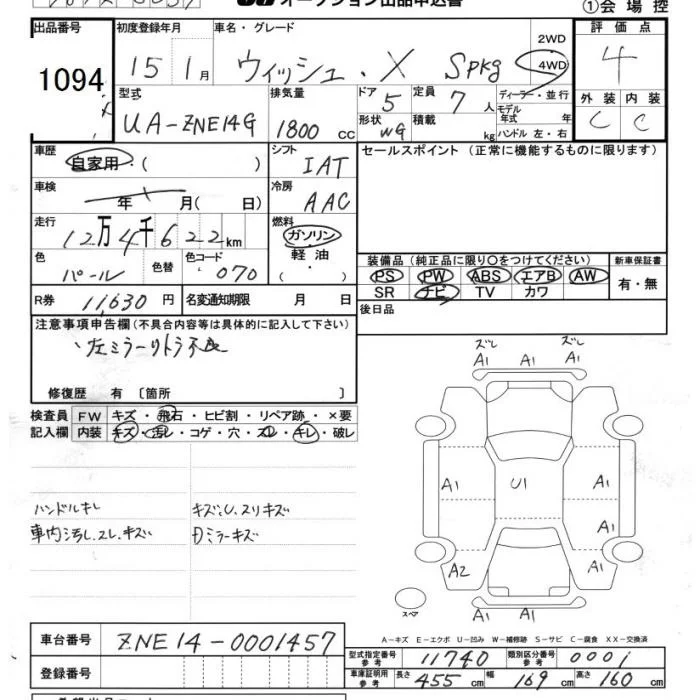 オークション出品申込書 ①会場控
出品番号 初度登録年月 車名・グレード 2WD 評価点
1094 15 1月 ウィッシュ・X Spkg 4WD 4
型式 排気量 ドア 5 定員 7人 ディーラー・並行 外装 内装
UA-ZNE14G 1800 CC 形状 WG 積載 kg モデル年式 年 C C
ハンドル 左・右
車歴 自家用・( ) シフト IAT セールスポイント (正常に機能するものに限ります)
車検 年 月( 日) 冷房 AAC
走行 12万4千622km 燃料 ガソリン
軽油
( ・ )
色 パール 色替 色コード 070 装備品(純正品に限り〇をつけてください) 新車保証書
PS PW ABS エアB AW 有・無
R券 11,630円 名変通知期限 月 日 SR ナビ TV カワ
注意事項申告欄(不具合内容等は具体的に記入して下さい) 後日品
左ミラーリトラ不良
修復歴 有 〔箇所 〕
検査員 FW キズ・飛石・ヒビ割・リペア跡・×要
記入欄 内装 キズ・汚レ・コゲ・穴・スレ・キレ・破レ
ズレ ズレ
A1 A1 A1
ハンドルキレ キズ、U、スリキズ
車内汚レ、スレ、キズ Dミラーキズ
A1 U1 A1
A1
A2 A1
スペア
A1
A-キズ E-エクボ U-凹み W-補修跡 S-サビ C-腐食 XX-交換済
車台番号 ZNE14-0001457
型式指定番号 参考 11740 類別区分番号 参考 0001
登録番号 車庫証明用 参考 長さ 455 cm 幅 169 cm 高さ 160 cm